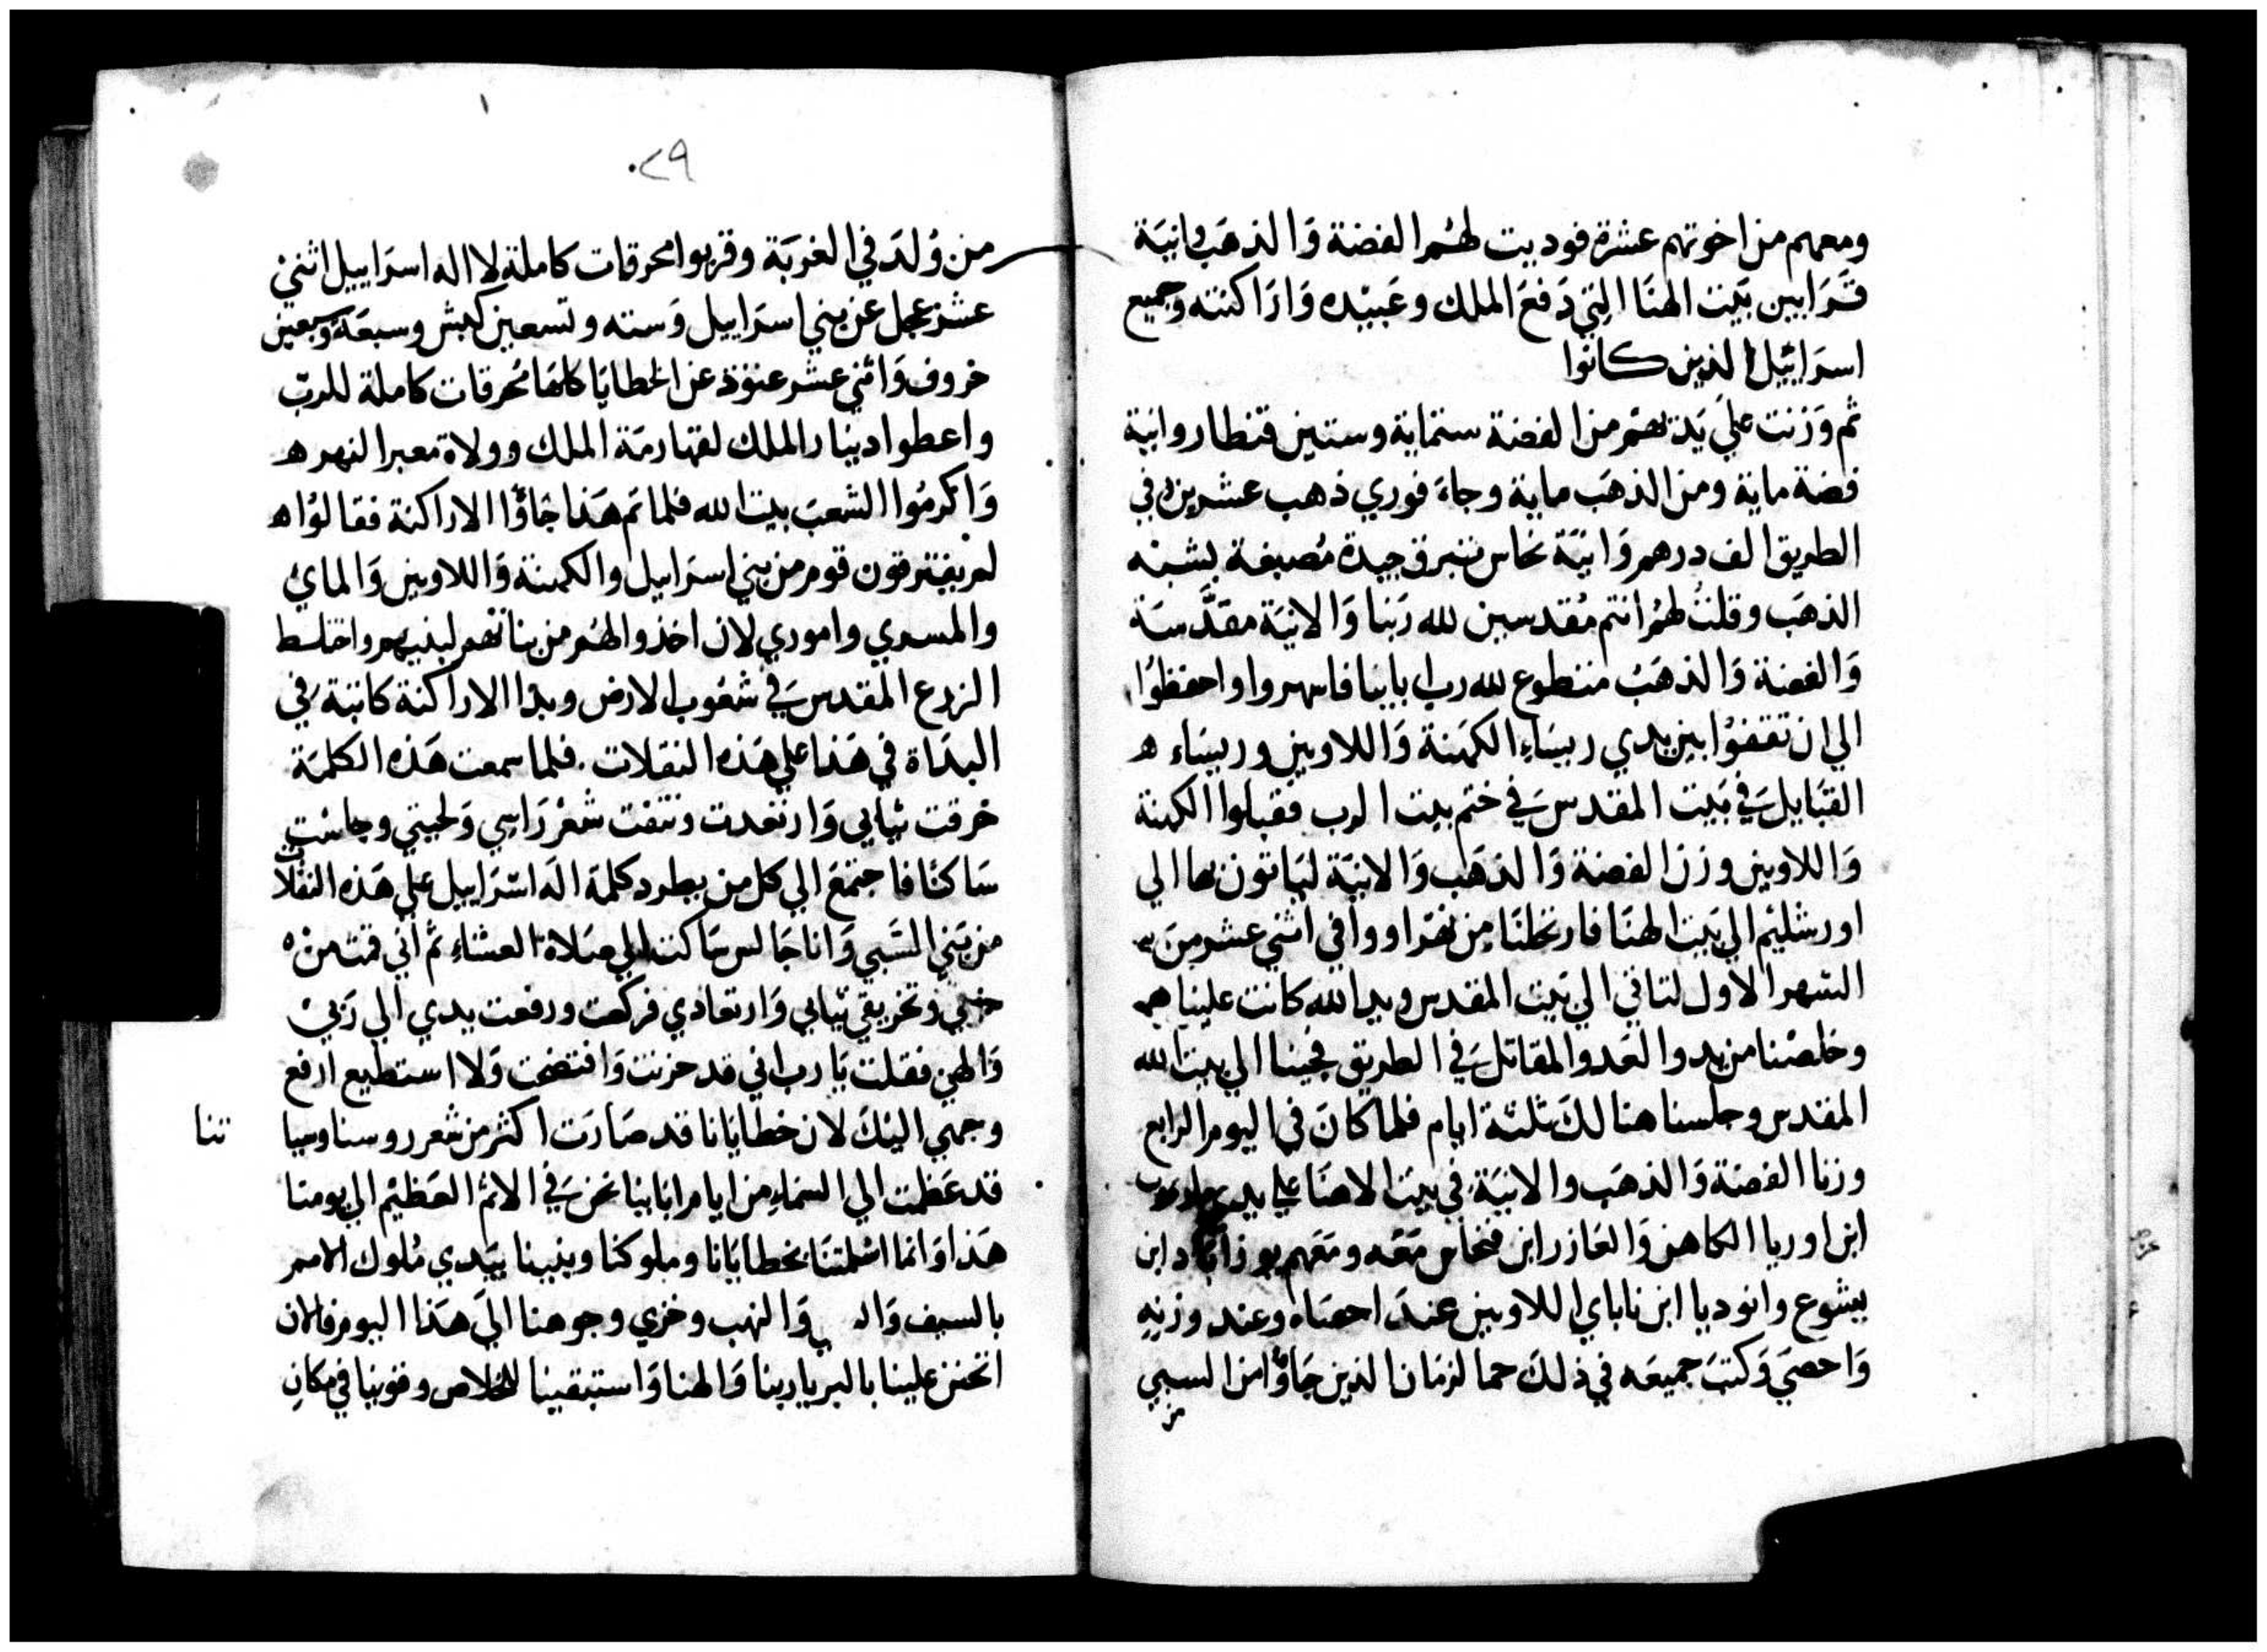 ومعهم من اخوتهم عشرة فوديت لهُم الفضة وَالذهَب وانيَة
قَرَابين بَيت الهنَا التِي دَفعَ الملك وعَبيْده وَارَاكنته وجميع
اسرَائيل الذين كانوا
ثم وَزنت علي يَديهم من الفضة ستماية وستين قنطار وانية
فضة ماية ومن الذهَب ماية وجاء فوري ذهب عشرين في
الطريق الف درهم وَانيَة نحاس تبرق جيدة مُصبغة بشبْه
الذهَب وقلتُ لهُم انتم مُقدسين لله رَبنا وَالانيَة مقدَّسَة
وَالفضة وَالذهَبُ متطوع لله رب اباينا فاسهروا واحفظوُا
الي ان تقفوُا بين يدي ريسَاء الكهَنة وَاللاويين وريسَاء ه
القبَايل في بَيت المقدس في ختم بيت الرب فقبلوا الكهنة
وَاللاويين وزن الفضة وَالذهَب وَالانيَة ليَاتون بها الي
اورشليْم الي بَيت الهنَا فارتحلنَا من نهَر اووا في اثني عشر من
الشهر الاول لناتي الي بَيت المقدس ويد الله كانت علينا
وخلصْنا من يد والعَدو المقاتل في الطريق فجينا الي بيت الله
المقدس وجلسنا هنا لك ثلثة ايام فلما كانَ في اليوم الرابع
وزنا الفضة وَالذهَب والانيَة في بيت الاهنَا علي يد
ابن اوريا الكاهن وَالعَازر ابن فنحاس مَعَه ومَعَهم يوزاباد ابن
يشوع وانوديا ابن ناباي اللاويين عندَ احصَاه وعند وزنهِ
وَاحصيَ وَكتبَ جميعَه في ذلك حما لزمَان الذين جَاؤا من السبي
من
٠٢٩
من وُلدَ في الغربَة وقربوا محرقات كاملة لا اله اسرَاييل اثني
عشر عجل عن بني اسرَاييل وَسته وتسعين كبش وسبعَة وسبعين
خروف وَاثني عشر عنوَذ عن الخطايَا كلهَا مُحرقات كاملة للربّ
واعطوا دينار الملك لقهارمَة الملك وولاة معبر النهر ه
وَاكرمُوا الشعبَ بيت الله فلما تم هَذا جَاؤا الاراكنة فقالوُا ه
لم يفترقون قوم من بني اسرَاييل والكهنة وَاللاويين وَالماي
والمسري واموري لان اخذوا لهُم من بناتهم لبنيهم واختلط
الزرع المقدس في شعُوب الارض ويد الاراكنة كانتة في
البدَاة في هَذا علي هَذه النقلات. فلما سمعت هَذه الكلمَة
خرقت ثيَابي وَارتعَدت ونتفت شعْر رَاسِي وَلحيتي وجلسْت
سَاكنًا فاجتمَعَ الي كل من يطرد كلمَة الَه اسْرَاييل علي هَذه النقلات
من بَني السَبي وَانا جَالس سَاكت الي صَلاة العشاء ثم اني قمت من
حزني وتخريقي ثيابي وَارتعادي فركعت ورفعت يدي الي رَبيْ
وَالهي فقلت يَا رب اني قد حزنت وَافتضحت وَلا استطيع ارفع
وجهي اليْكَ لان خطايَانا قد صَارَت اكثر من شعر روسنا وسيا
تنا
قد عَظمت الي السمَاء من ايام ابَاينا نحن في الاثم العَظيْم الي يومنا
هَذا وَانما اسْلمتنَا بخطايَانا وملوكنا وبنينا بيَدي مُلوك الامم
بالسيف وَال ي وَالنهب وخزي وجوهنا الي هَذا اليوم فالان
اتحنن علينا بالبر يا ربنا وَالهنا وَاستبقينا للخلاص وقوينا في مكانِ